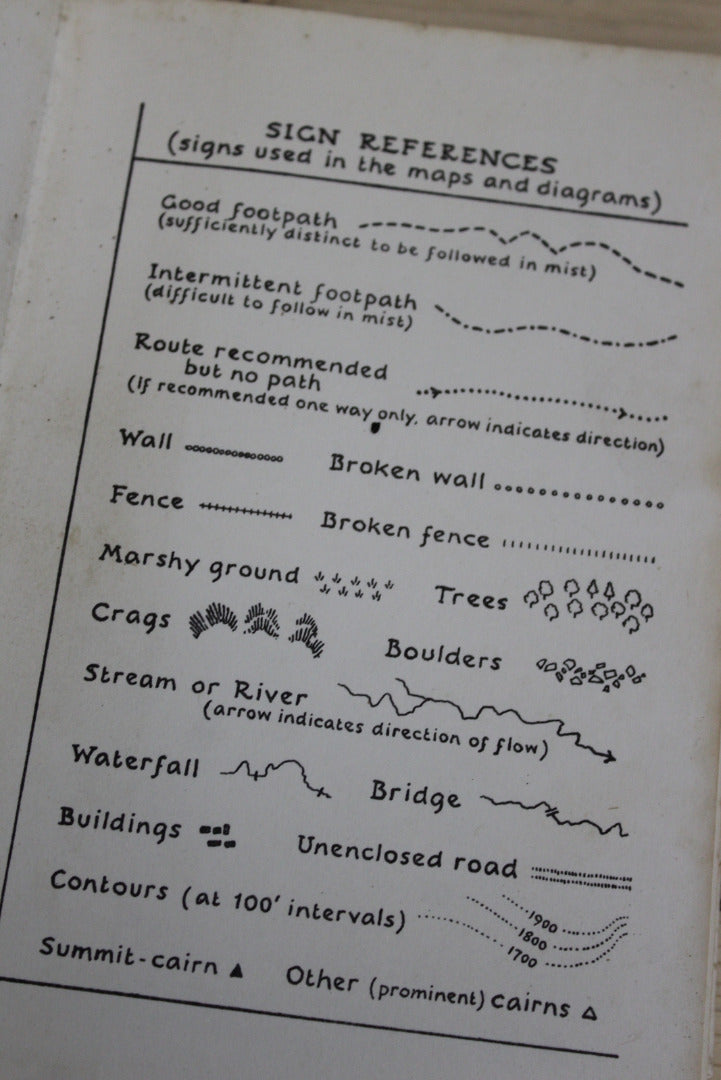 SIGN REFERENCES
(signs used in the maps and diagrams)
Good footpath
(sufficiently distinct to be followed in mist)
Intermittent footpath
(difficult to follow in mist)
Route recommended
but no path
(If recommended one way only, arrow indicates direction)
Wall Broken wall
Fence Broken fence
Marshy ground Trees
Crags Boulders
Stream or River
(arrow indicates direction of flow)
Waterfall Bridge
Buildings Unenclosed road
Contours (at 100' intervals) 1900
1800
1700
Summit-cairn Other (prominent) cairns